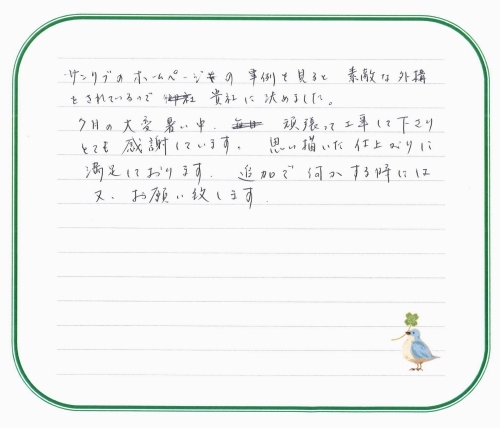 サンリブのホームページの事例を見ると 素敵な外構
をされているので 貴社に決めました。
7月の大変暑い中、頑張って工事して下さり
とても感謝しています。思い描いた仕上がりに
満足しております。追加で何かする時には
又、お願い致します。